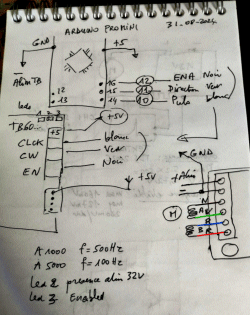 31-08-2024
ARDUINO PROMINI
GND
+5
Alim TB
12
13
16
15
14
12 ENA Noir
11 Direction Vert
10 Pulse blanc
leds
TB60...
+5V
+5
CLCK
CW
EN
blanc
Vert
Noir
+5V
GND
+Alim
N
M
A V
R
B R
A 1000 f=500Hz
A 5000 f=100Hz
Led 2 presence alim 32V
Led 3 Enabled